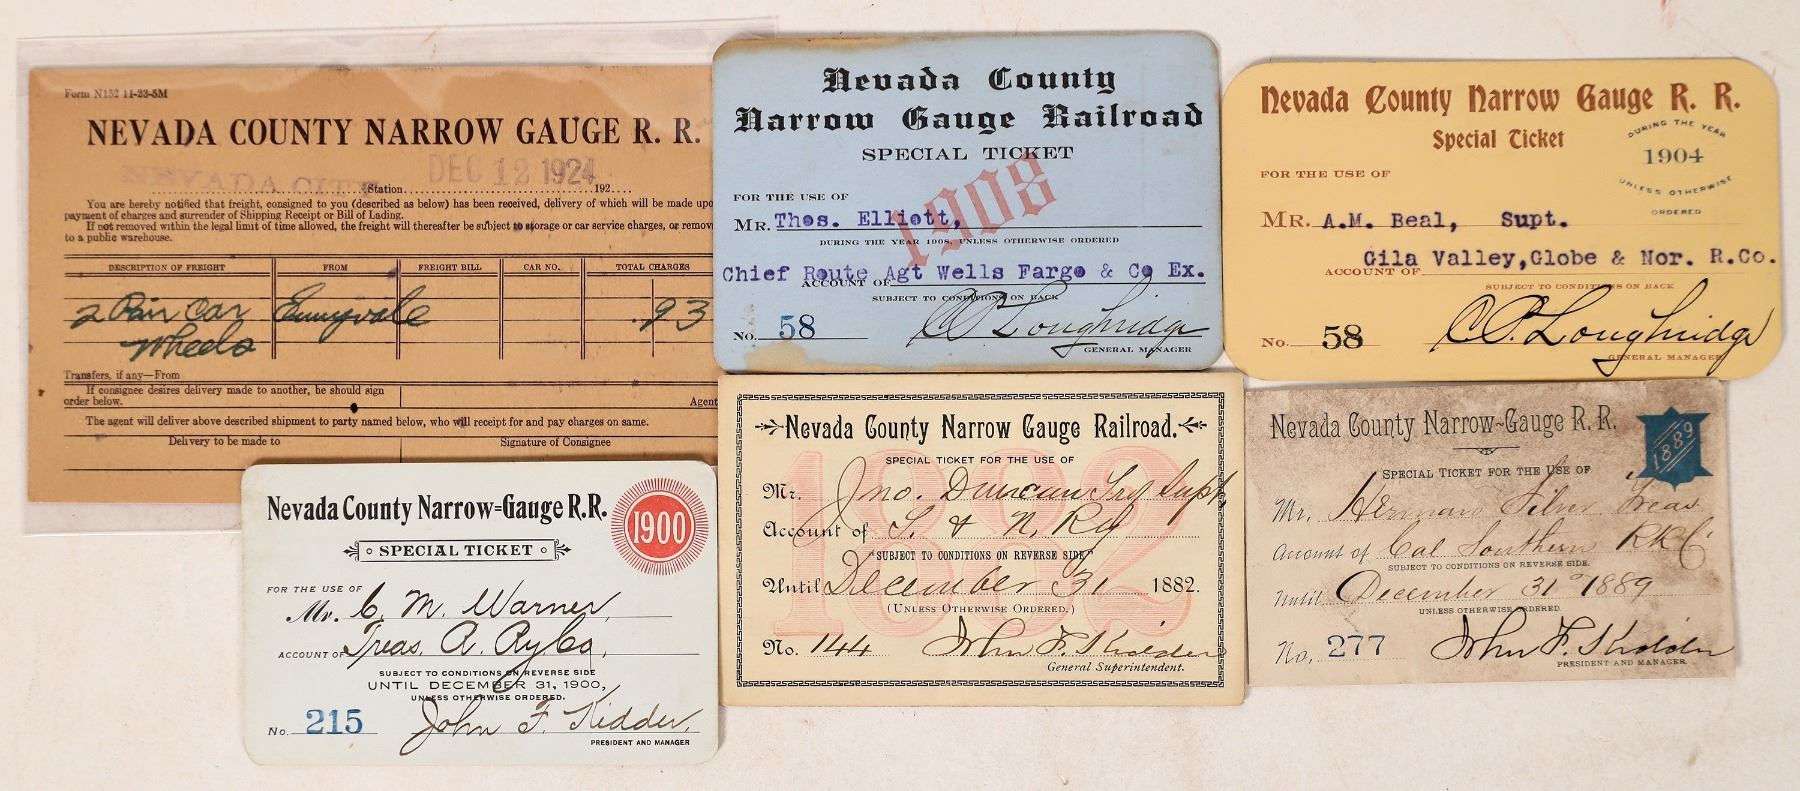 Form N152 11-23-5M
NEVADA COUNTY NARROW GAUGE R. R.
NEVADA CITY Station DEC 12 1924 192
You are hereby notified that freight, consigned to you (described as below) has been received, delivery of which will be made upo
payment of charges and surrender of Shipping Receipt or Bill of Lading.
If not removed within the legal limit of time allowed, the freight will thereafter be subject to storage or car service charges, or remov
to a public warehouse.
DESCRIPTION OF FREIGHT FROM FREIGHT BILL CAR NO. TOTAL CHARGES
2 Pair Car Sunnyvale .93
Wheels
Transfers, if any—From
If consignee desires delivery made to another, he should sign
order below. Agent
The agent will deliver above described shipment to party named below, who will receipt for and pay charges on same.
Delivery to be made to Signature of Consignee
Nevada County
Narrow Gauge Railroad
SPECIAL TICKET
1908
FOR THE USE OF
MR. Thos. Elliott,
DURING THE YEAR 1908, UNLESS OTHERWISE ORDERED
Chief Route Agt Wells Fargo & Co Ex.
ACCOUNT OF
SUBJECT TO CONDITIONS ON BACK
No. 58 C P Loughridge
GENERAL MANAGER
Nevada County Narrow Gauge R. R.
Special Ticket
DURING THE YEAR
1904
UNLESS OTHERWISE
ORDERED
FOR THE USE OF
MR. A.M. Beal, Supt.
Gila Valley,Globe & Nor. R.Co.
ACCOUNT OF
SUBJECT TO CONDITIONS ON BACK
No. 58 C.P. Loughridge
GENERAL MANAGER
Nevada County Narrow=Gauge R.R.
SPECIAL TICKET
1900
FOR THE USE OF
Mr. C. M. Warner,
ACCOUNT OF Treas. A. Ry Co.
SUBJECT TO CONDITIONS ON REVERSE SIDE
UNTIL DECEMBER 31, 1900,
UNLESS OTHERWISE ORDERED.
No. 215 John F. Kidder,
PRESIDENT AND MANAGER
Nevada County Narrow Gauge Railroad.
SPECIAL TICKET FOR THE USE OF
1882
Mr. Jno. Duncan Supt
Account of S. & N. Ry
"SUBJECT TO CONDITIONS ON REVERSE SIDE"
Until December 31 1882.
(UNLESS OTHERWISE ORDERED.)
No. 144 John F. Kidder
General Superintendent.
Nevada County Narrow-Gauge R. R.
1889
SPECIAL TICKET FOR THE USE OF
Mr. Herman Silver Treas
Account of Cal Southern RR Co
SUBJECT TO CONDITIONS ON REVERSE SIDE.
Until December 31º 1889
UNLESS OTHERWISE ORDERED.
No. 277 John F. Kidder
PRESIDENT AND MANAGER.